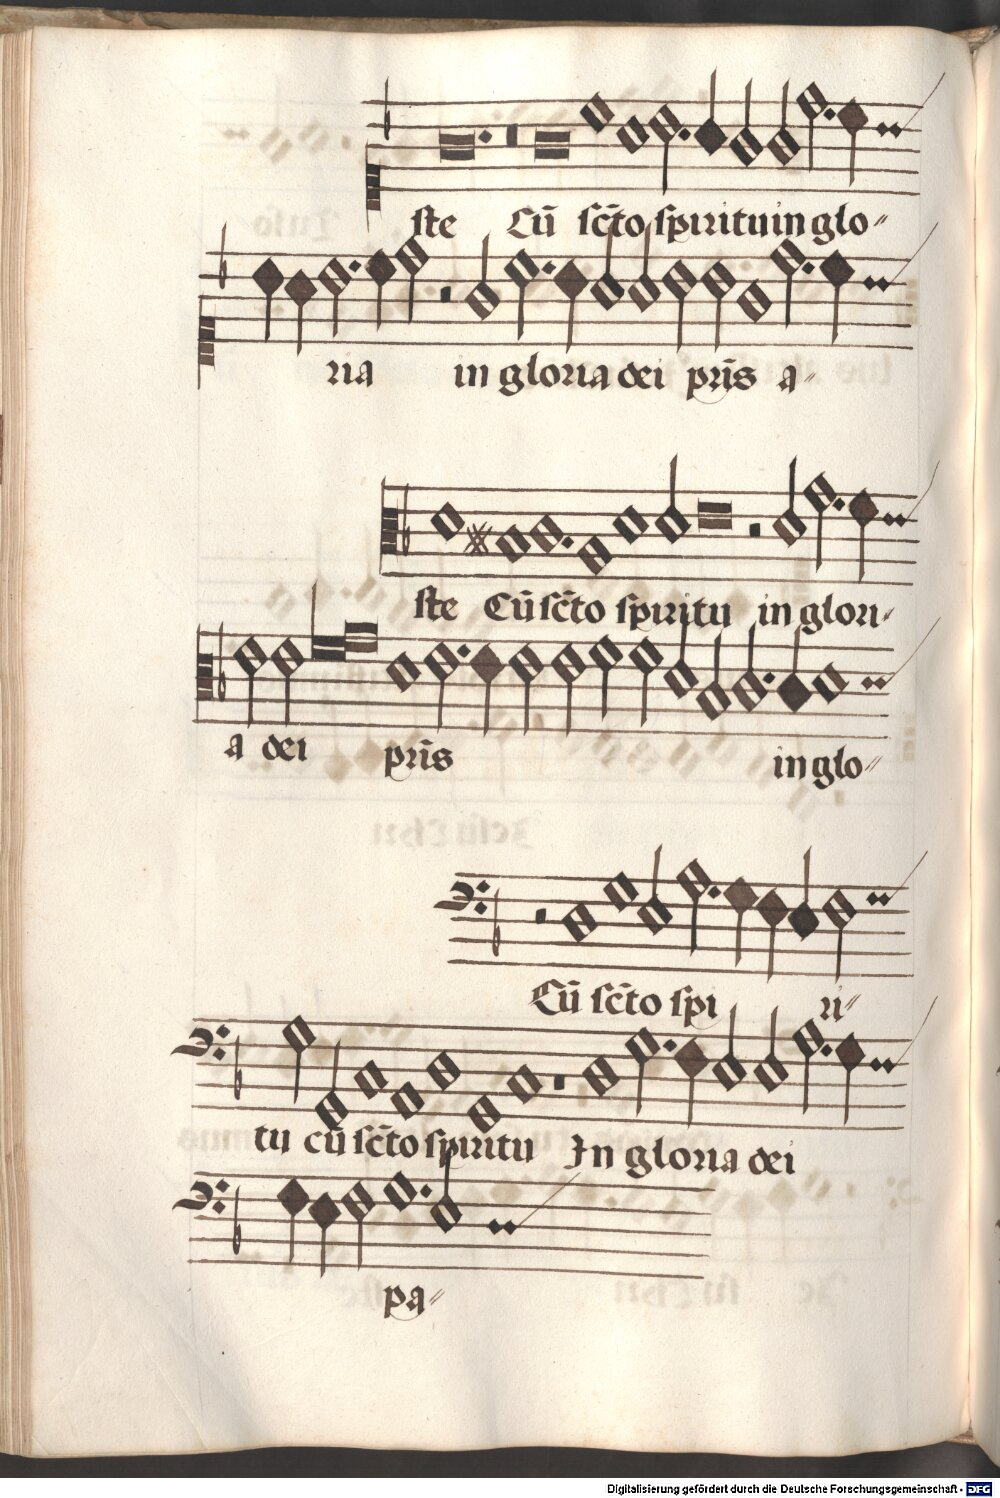 ste Cū sc̄to spirituin glo〃
ria in gloria dei pr̄is a〃
ste Cū sc̄to spiritu in glori〃
a dei pr̄is in glo〃
Cū sc̄to spi ri〃
tu cū sc̄to spiritu In gloria dei
pa〃
Digitalisierung gefördert durch die Deutsche Forschungsgemeinschaft - DFG